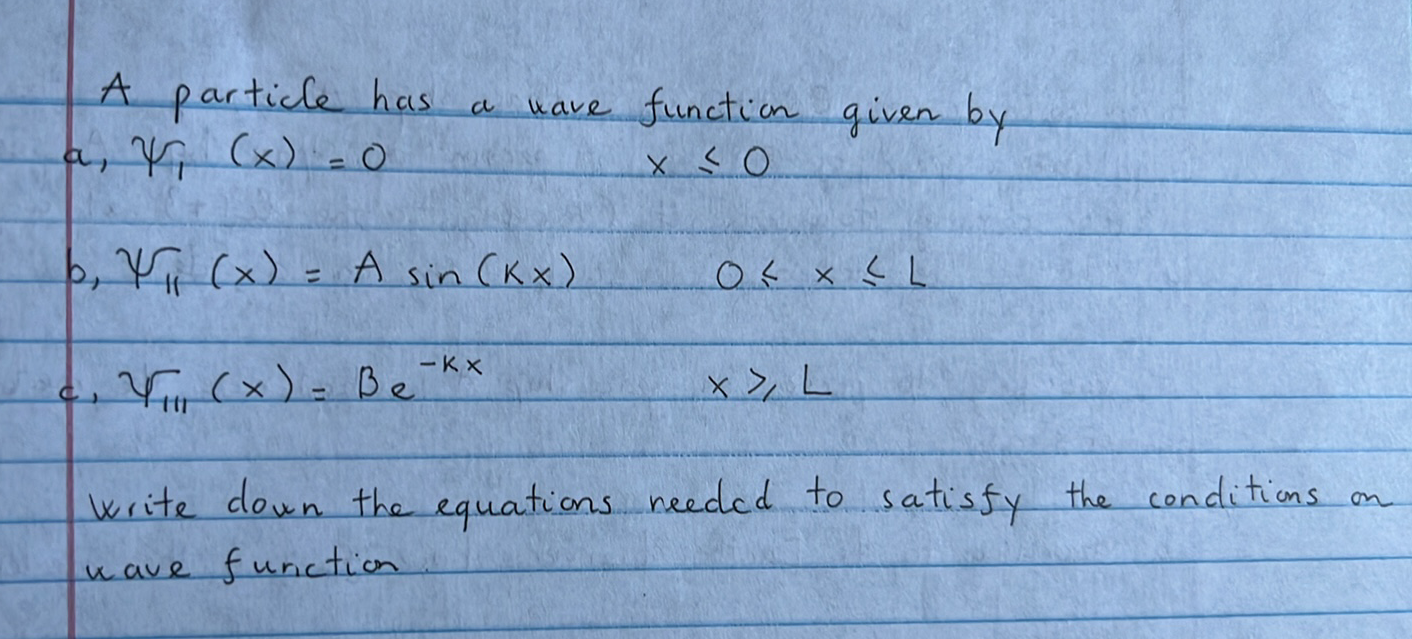 A particle has a wave function given by
a, Ψ_I (x) = 0 x ≤ 0
b, Ψ_II (x) = A sin(Kx) 0 ≤ x ≤ L
c, Ψ_III (x) = Be^{-Kx} x ≥ L
Write down the equations needed to satisfy the conditions on
wave function.